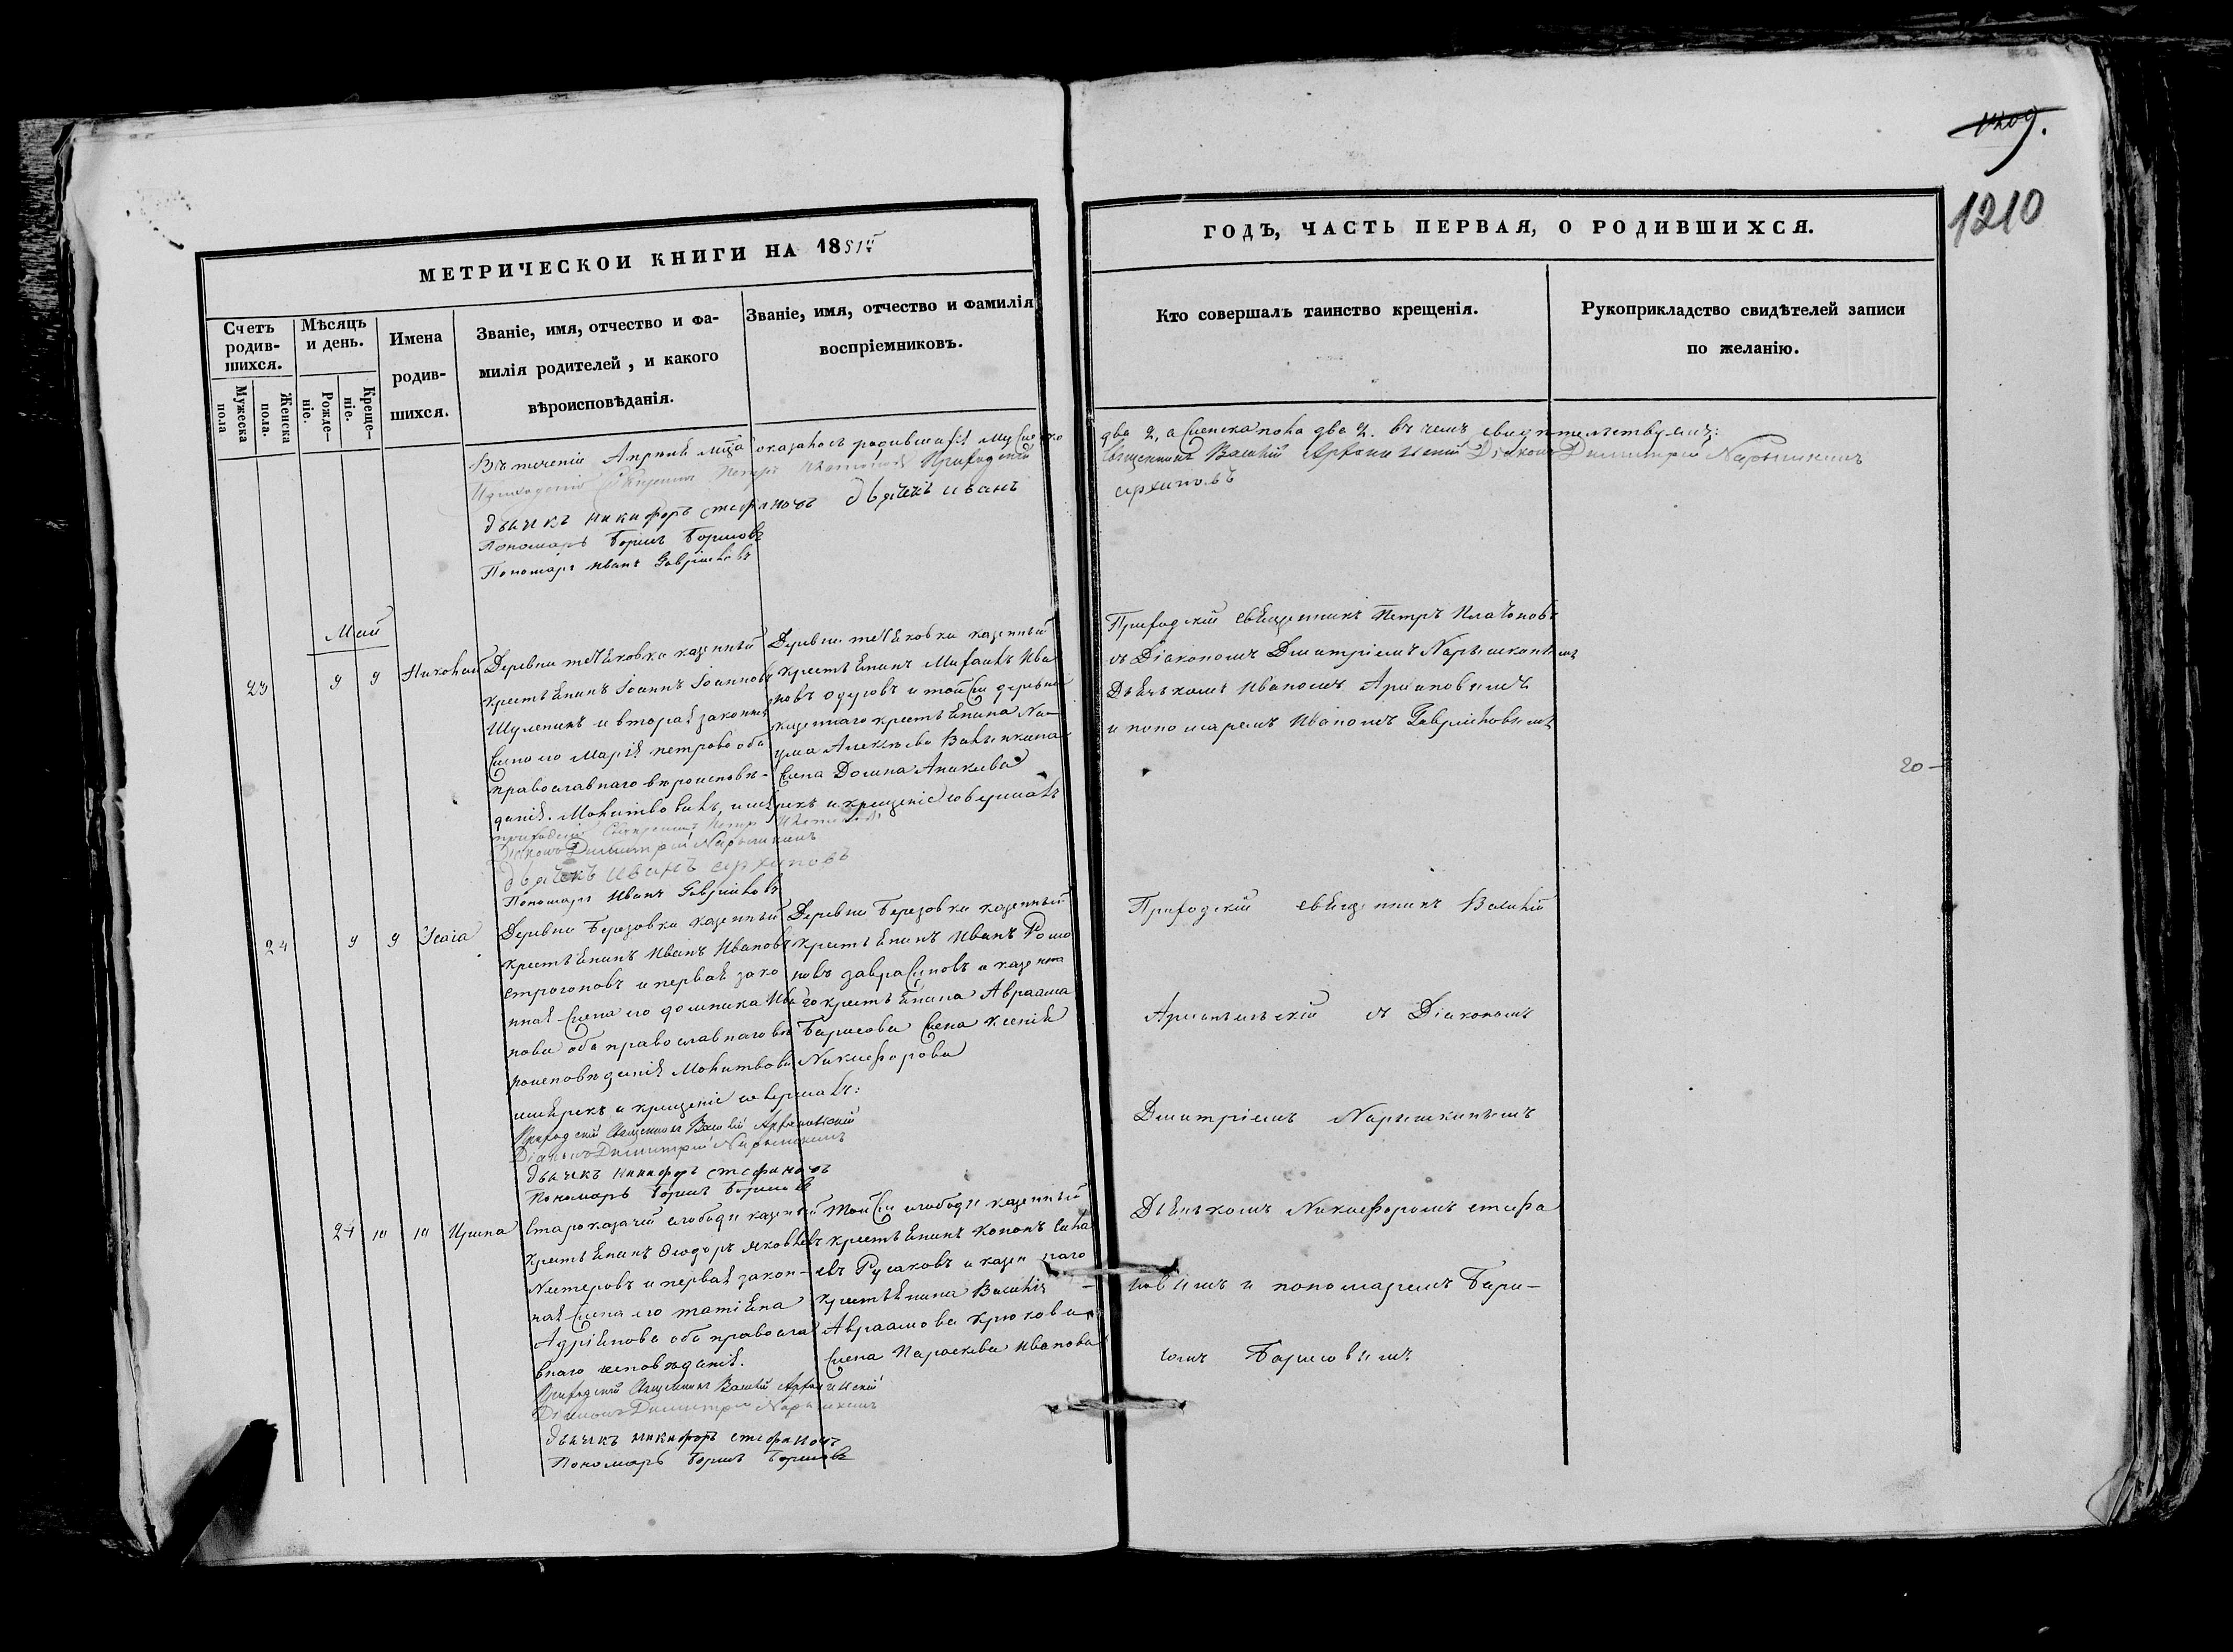 1209.
1210
МЕТРИЧЕСКОЙ КНИГИ НА 1851й
ГОДЪ, ЧАСТЬ ПЕРВАЯ, О РОДИВШИХСЯ.
Счетъ родив-шихся.
Мужеска пола
Женска пола.
Мѣсяцъ и день.
Рожде-ніе.
Креще-ніе.
Имена
родив-
шихся.
Званіе, имя, отчество и фа-
милія родителей, и какого
вѣроисповѣданія.
Званіе, имя, отчество и фамилія
воспріемниковъ.
Кто совершалъ таинство крещенія.
Рукоприкладство свидѣтелей записи
по желанію.
Въ теченіи Апрѣля мца оказалось родившихся мужеска
два 2, а женска пола два 2. въ чемъ свидѣтельствуемъ:
Приходскій Священникъ Петръ Платоновъ Приходскій
Священникъ Василій Діаконъ Димитрій Нарышкинъ
дьячекъ никифоръ стефановъ дьячекъ иванъ
архиповъ
Пономарь Борисъ Борисовъ
Пономарь Иванъ Гавриловъ
Май
23 9 9 Николай
Деревни казенный
крестьянинъ Іоаннъ Іоанновъ
Шулепинъ и вторая законная
жена его Марія петрова оба
православнаго вѣроисповѣ-
данія. Молитвовалъ, имя рекъ и крещеніе совершалъ
приходскій Священникъ Петръ Платоновъ
Діаконъ Димитрій Нарышкинъ
дьячекъ иванъ архиповъ
Пономарь Иванъ Гавриловъ
Деревни казенный
крестьянинъ Михаилъ Ива
новъ и той же деревни
казеннаго крестьянина На-
ума Алексѣева
жена Домна
Приходскій священникъ Петръ Платоновъ
съ Діакономъ Дмитріемъ Нарышкинымъ
Дьячькомъ Иваномъ Архиповымъ
и пономаремъ Иваномъ Гавриловымъ
20 —
24 9 9 Исаія
Деревни Березовки казенный
крестьянинъ Иванъ Ивановъ
Строгоновъ и первая зако
нная жена его домника Ива
нова оба православнаго вѣ
роисповѣданія Молитвовалъ
имя рекъ и крещеніе совершалъ:
Приходскій Священникъ Василій
Діаконъ Димитрій Нарышкинъ
дьячекъ никифоръ стефановъ
Пономарь Борисъ Борисовъ
Деревни Березовки казенный
крестьянинъ Иванъ Рома
новъ и казенна
го крестьянина Авраама
Борисова жена Ксенія
Никифорова
Приходскій священникъ Василій
съ Діакономъ
Дмитріемъ Нарышкинымъ
24 10 10 Ирина
Староказачей слободы казенный
крестьянинъ Ѳеодоръ Яковлевъ
Нестеровъ и первая закон-
ная жена его татіяна
Адріянова оба правосла
внаго исповѣданія.
Приходскій Священникъ Василій
Діаконъ Димитрій Нарышкинъ
дьячекъ никифоръ стефановъ
Пономарь Борисъ Борисовъ
Той же слободы казенный
крестьянинъ Кононъ Сила
евъ Русаковъ и казеннаго
крестьянина Василія
Авраамова Крюкова
жена Параскева Иванова
Дьячькомъ Никифоромъ стефа
новымъ и пономаремъ Бори-
сомъ Борисовымъ